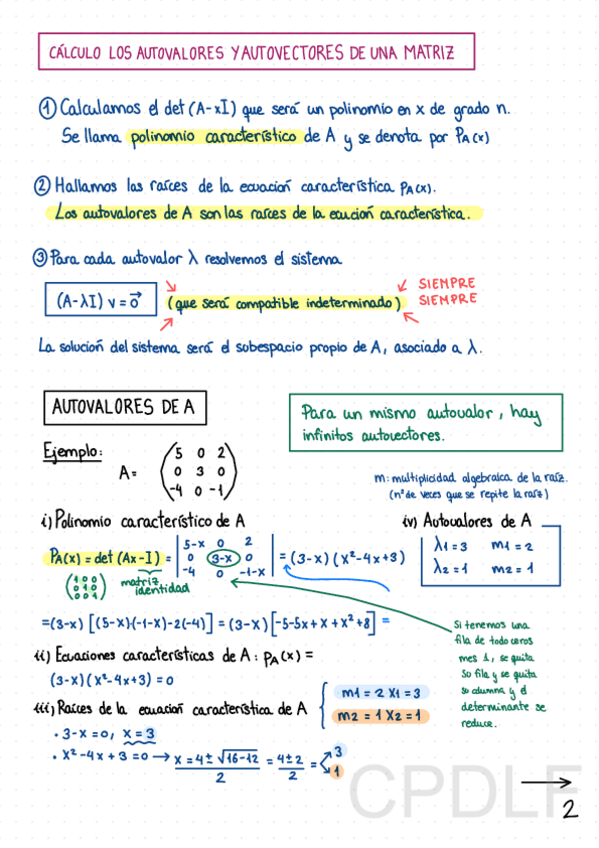 CÁLCULO LOS AUTOVALORES Y AUTOVECTORES DE UNA MATRIZ
① Calculamos el det (A-xI) que será un polinomio en x de grado n.
Se llama polinomio característico de A y se denota por PA(x)
② Hallamos las raíces de la ecuación característica PA(x).
Los autovalores de A son las raíces de la ecución característica.
③ Para cada autovalor λ resolvemos el sistema
(A-λI) v = 0⃗ (que será compatible indeterminado) SIEMPRE
SIEMPRE
La solución del sistema será el subespacio propio de A, asociado a λ.
AUTOVALORES DE A
Para un mismo autovalor, hay
infinitos autovectores.
Ejemplo:
A=
5 0 2
0 3 0
-4 0 -1
m: multiplicidad algebraica de la raíz.
(nº de veces que se repite la raíz)
i) Polinomio característico de A
iv) Autovalores de A
λ1 = 3 m1 = 2
λ2 = 1 m2 = 1
PA(x) = det (Ax-I) =
5-x 0 2
0 3-x 0
-4 0 -1-x
= (3-x) (x²-4x+3)
1 0 0
0 1 0
0 0 1
matriz
identidad
=(3-x) [(5-x)(-1-x)-2(-4)] = (3-x)[-5-5x+x+x²+8] =
Si tenemos una
fila de todo ceros
mes 1, se quita
su fila y se quita
su columna y el
determinante se
reduce.
ii) Ecuaciones características de A: PA(x) =
(3-x)(x²-4x+3) = 0
iii) Raíces de la ecuación característica de A
m1 = 2 X1 = 3
m2 = 1 X2 = 1
· 3-x = 0, x = 3
· x²-4x+3 = 0 → x = 4±√16-12 / 2 = 4±2 / 2 = 3
1
CPDLF
2